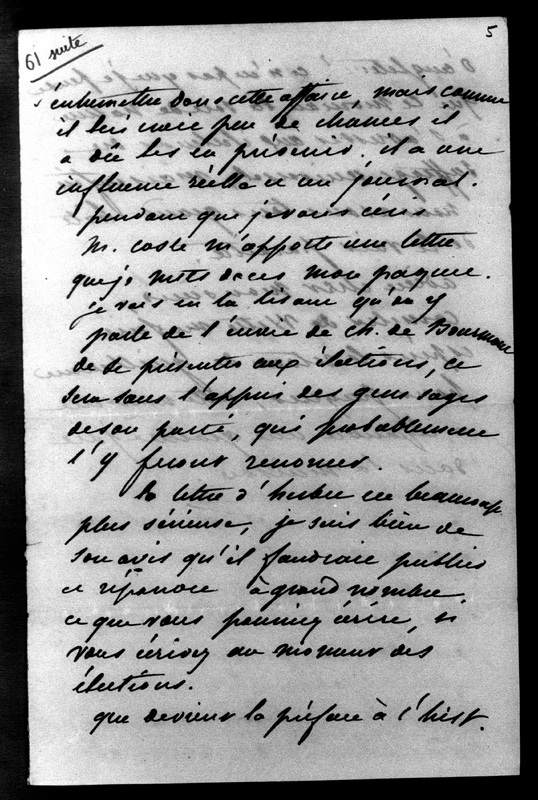 5
61 suite
s'entremettre dans cette affaire, mais comme
il lui croit peu de chances il
a dû les en prévenir. il a une
influence réelle et un journal.
pendant que je vous écris
M. coste m'apporte une lettre
que je mets dans mon paquet.
je vois en la lisant qu'on y
parle de l'envie de ch. de Bourmont
de se présenter aux élections, ce
sera sans l'appui des gens sages
de son parti, qui probablement
l'y feront renoncer.
la lettre d'herbet est beaucoup
plus sérieuse, je suis bien de
son avis qu'il faudrait publier
et répandre à grand nombre
ce que vous pourriez écrire, si
vous écrivez au moment des
élections.
que devient la préface à l'hist.